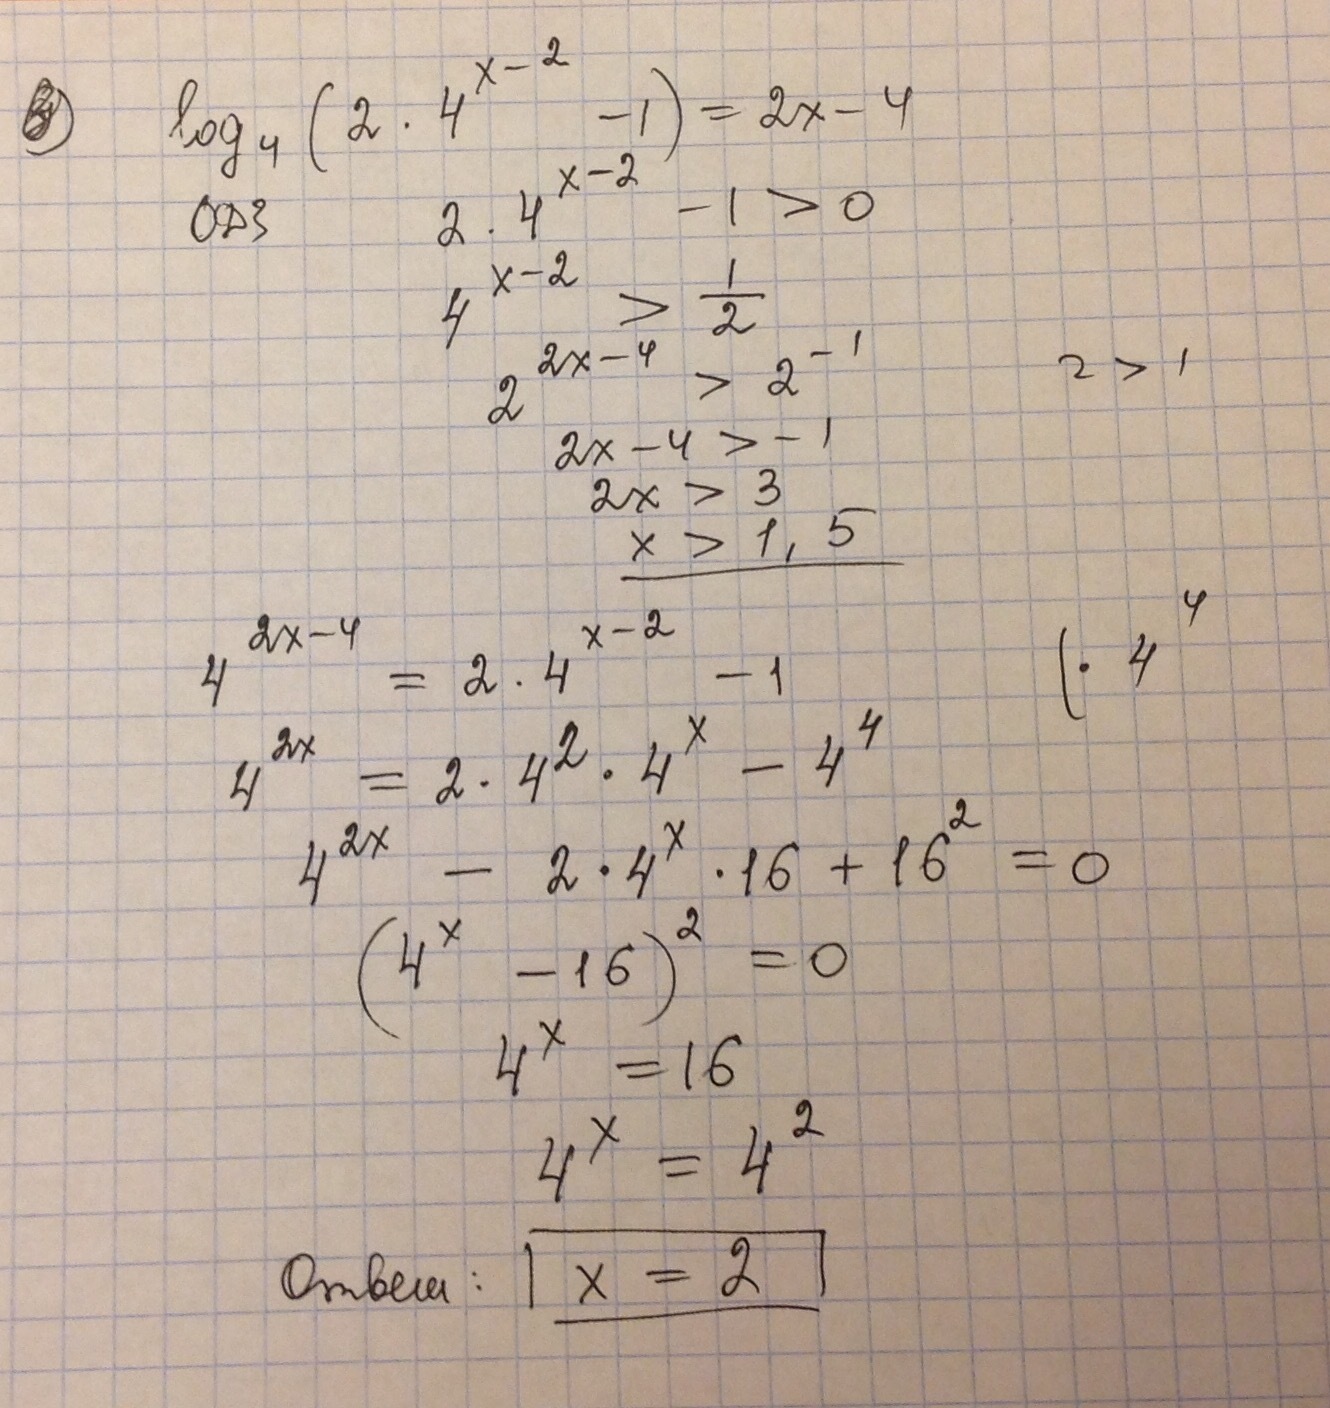 3) log₄(2 · 4^(x-2) - 1) = 2x - 4
ОДЗ 2 · 4^(x-2) - 1 > 0
4^(x-2) > 1/2
2^(2x-4) > 2^(-1) 2 > 1
2x - 4 > -1
2x > 3
x > 1,5
4^(2x-4) = 2 · 4^(x-2) - 1 (· 4^4
4^(2x) = 2 · 4^2 · 4^x - 4^4
4^(2x) - 2 · 4^x · 16 + 16^2 = 0
(4^x - 16)^2 = 0
4^x = 16
4^x = 4^2
Ответ: x = 2